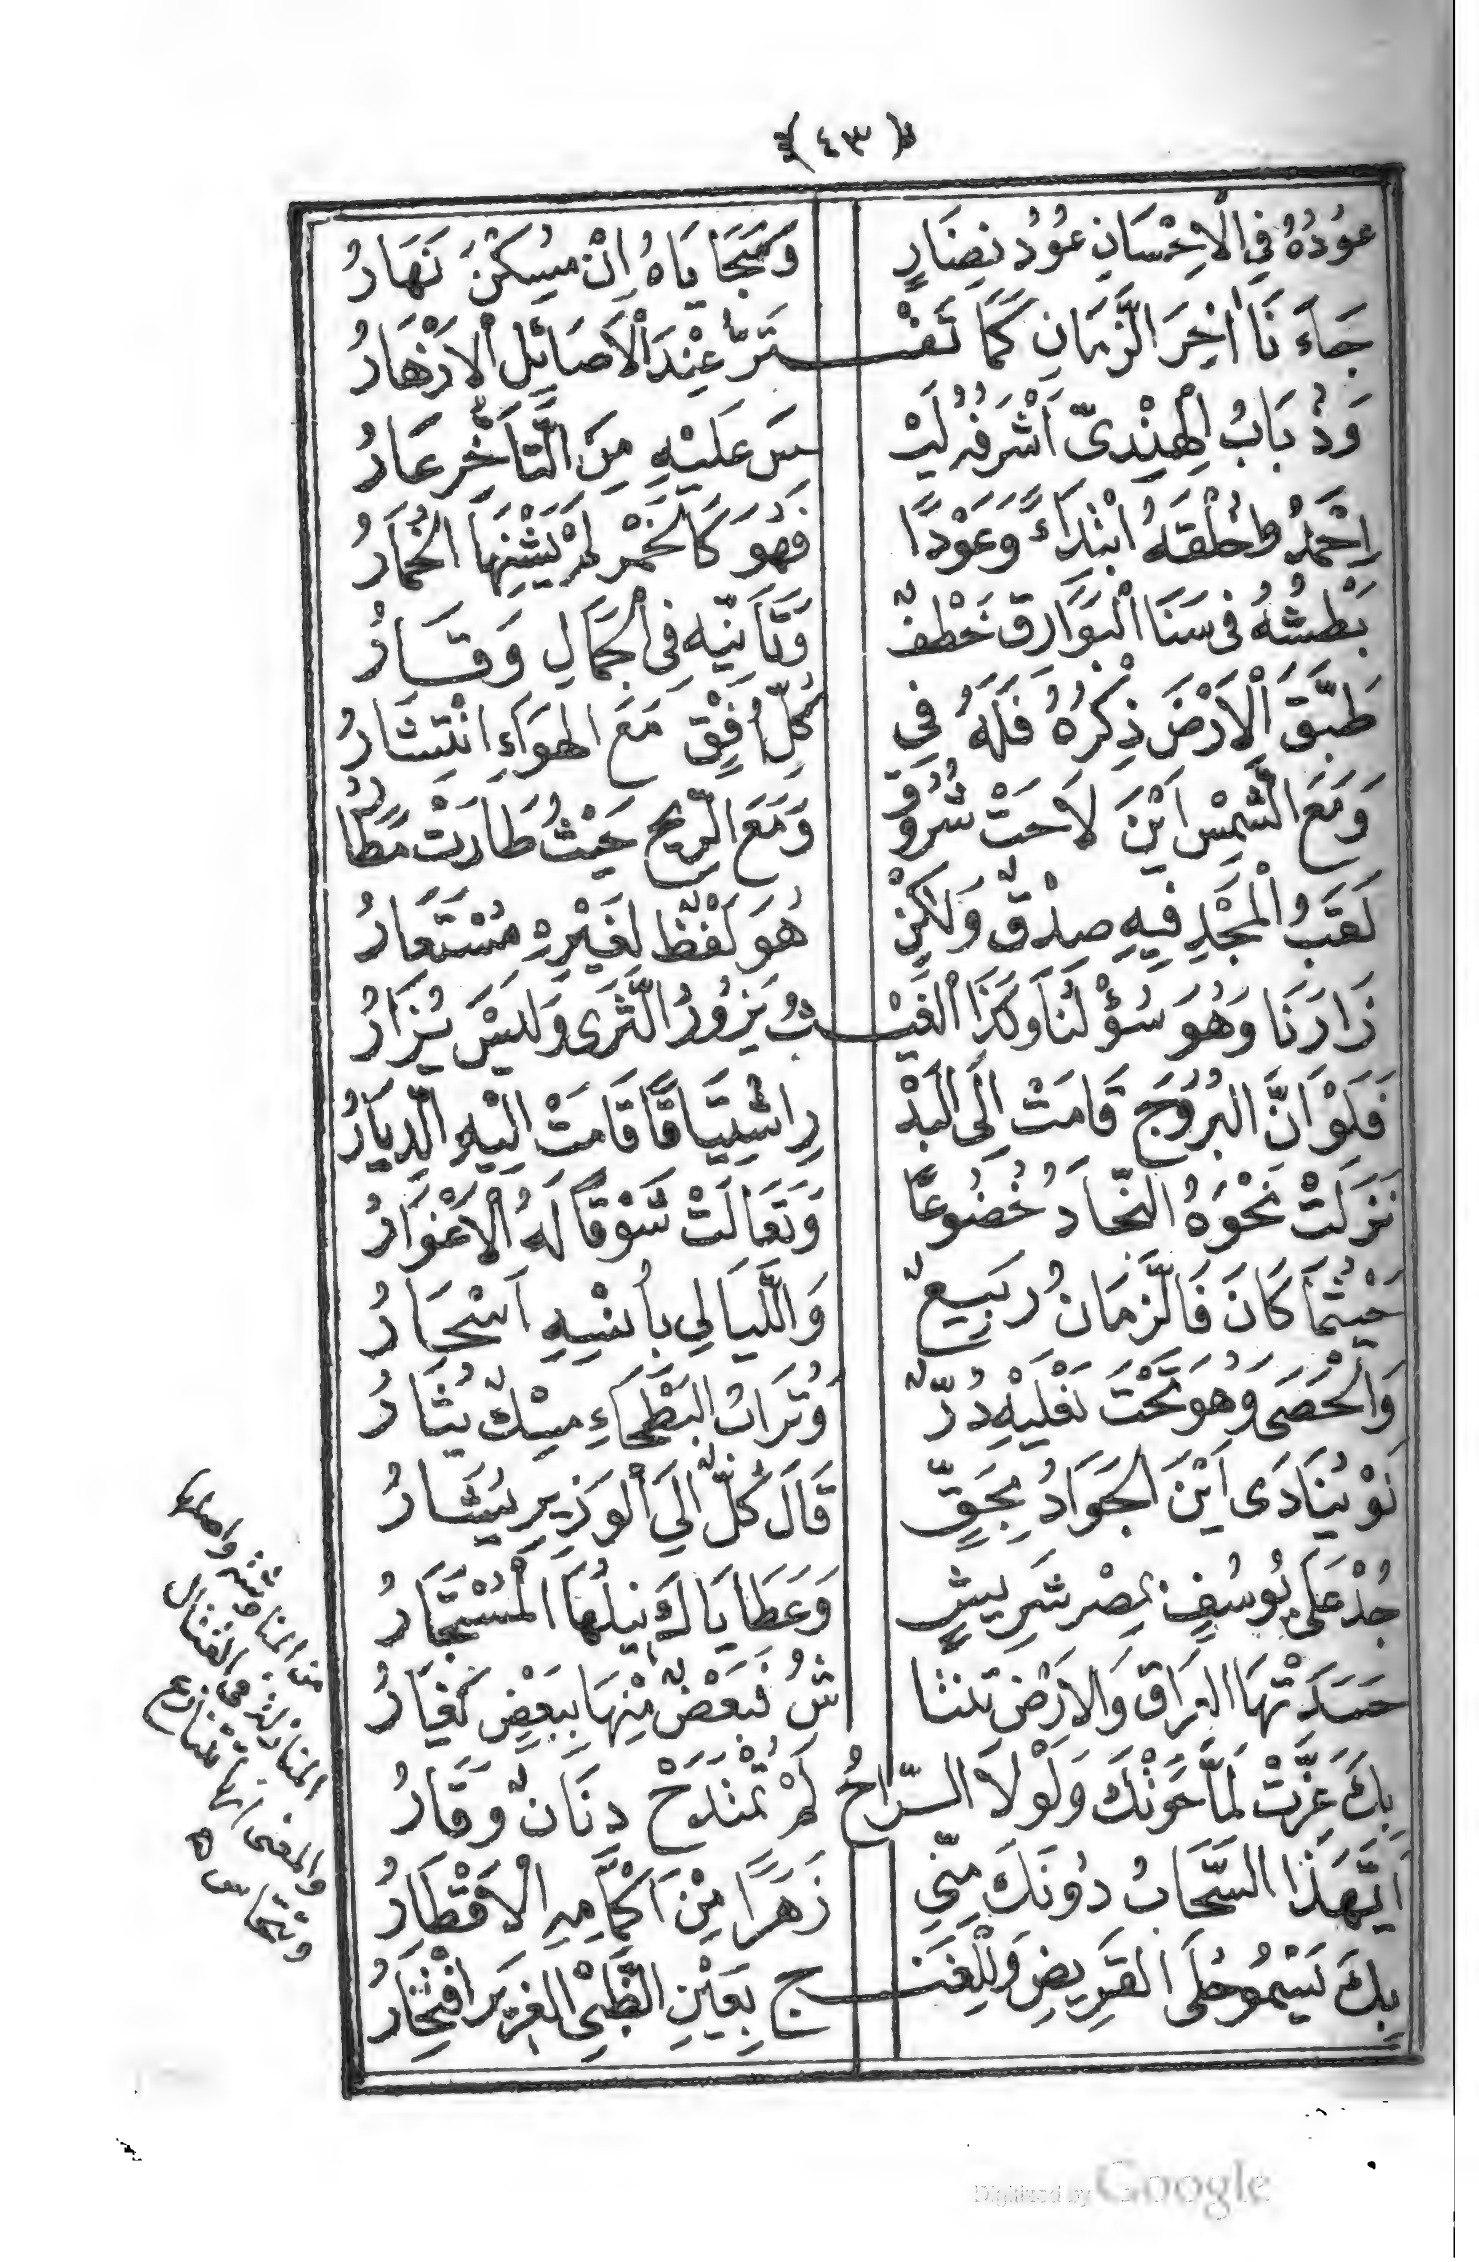 (٤٣)
عُوْدُهُ فِي الْاِحْسَانِ عُوْدُ نِضَارٍ وَمُحَيَّاهُ اِنْ نَهَارُ
جَاءَنَا اٰخِرَ الزَّمَانِ كَمَا تَفْـ ـتَرُّ عِنْدَ الْاَصَائِلِ الْاَزْهَارُ
وَذُبَابُ الْهِنْدِىِّ اَشْرَفُهُ لَيْـ ـسَ عَلَيْهِ مِنَ التَّأَخُّرِ عَارُ
اِحْمَدُوا خُلْقَهُ ابْتِدَاءً وَعَوْدًا فَهُوَ كَالْخَمْرِ لَمْ يَشِنْهَا الْخُمَارُ
بَطْشُهُ فِى سَنَا الْبَوَارِقِ خَطْفٌ وَتَأَنِّيهِ فِى الْجَمَالِ وَقَارُ
طَبَّقَ الْاَرْضَ ذِكْرُهُ فَلَهُ فِي كُلِّ اُفْقٍ مَعَ الْهَوَاءِ انْتِشَارُ
وَمَعَ الشَّمْسِ اَيْنَ لَاحَتْ شُرُوْقٌ وَمَعَ الرِّيحِ حَيْثُ طَارَتْ مَطَارُ
لَقَبُ الْمَجْدِ فِيهِ صِدْقٌ وَلٰكِنْ هُوَ لَفْظٌ لِغَيْرِهِ مُسْتَعَارُ
زَارَنَا وَهُوَ سُؤْلُنَا وَكَذَا الْغَيْـ ـثُ يَزُوْرُ الثَّرَى وَلَيْسَ يُزَارُ
فَلَوْ اَنَّ الْبُرُوْجَ قَامَتْ اِلَى الْبَدْ رِ اشْتِيَاقًا قَامَتْ اِلَيْهِ الدِّيَارُ
نَزَلَتْ نَحْوَهُ النِّجَادُ خُضُوْعًا وَتَعَالَتْ شَوْقًا لَهُ الْاَغْوَارُ
حَيْثُمَا كَانَ فَالزَّمَانُ رَبِيعٌ وَاللَّيَالِي بِأُنْسِهِ اَسْحَارُ
وَالْحَصَى وَهُوَ تَحْتَ نَعْلَيْهِ دُرٌّ وَتُرَابُ الْبَطْحَاءِ مِسْكٌ يُثَارُ
لَوْ يُنَادَى اَيْنَ الْجَوَادُ بِحَقٍّ قَالَ كُلٌّ اِلَى الْوَزِيرِ يُشَارُ
جُدْ عَلَى يُوْسُفٍ بِمِصْرِ شَرِيشٍ وَعَطَايَا لَهُ نِيلُهَا
حَسَدَتْهَا الْعِرَاقُ وَالْاَرْضُ تَنْتَا شُ فَبَعْضٌ مِنْهَا بِبَعْضٍ تَغَارُ
بِكَ عَزَّتْ لَمَّا حَوَتْكَ وَلَوْلَا الرَّاحُ لَمْ تُمْتَدَحْ دِنَانٌ وَقَارُ
اَيُّهَذَا السَّحَابُ دُوْنَكَ مِنِّي زَهَرًا مِنْ اَكْمَامِهِ الْاَقْطَارُ
بِكَ يَسْمُو حُلَى الْقَرِيضِ وَلِلْغَنْـ ـجِ بِعَيْنِ الظَّبْىِ الْغَرِيرِ افْتِخَارُ
من المناوشة واصلها
المنازلة فى القتال
والمعنى انها تتنازع
Digitized by Google